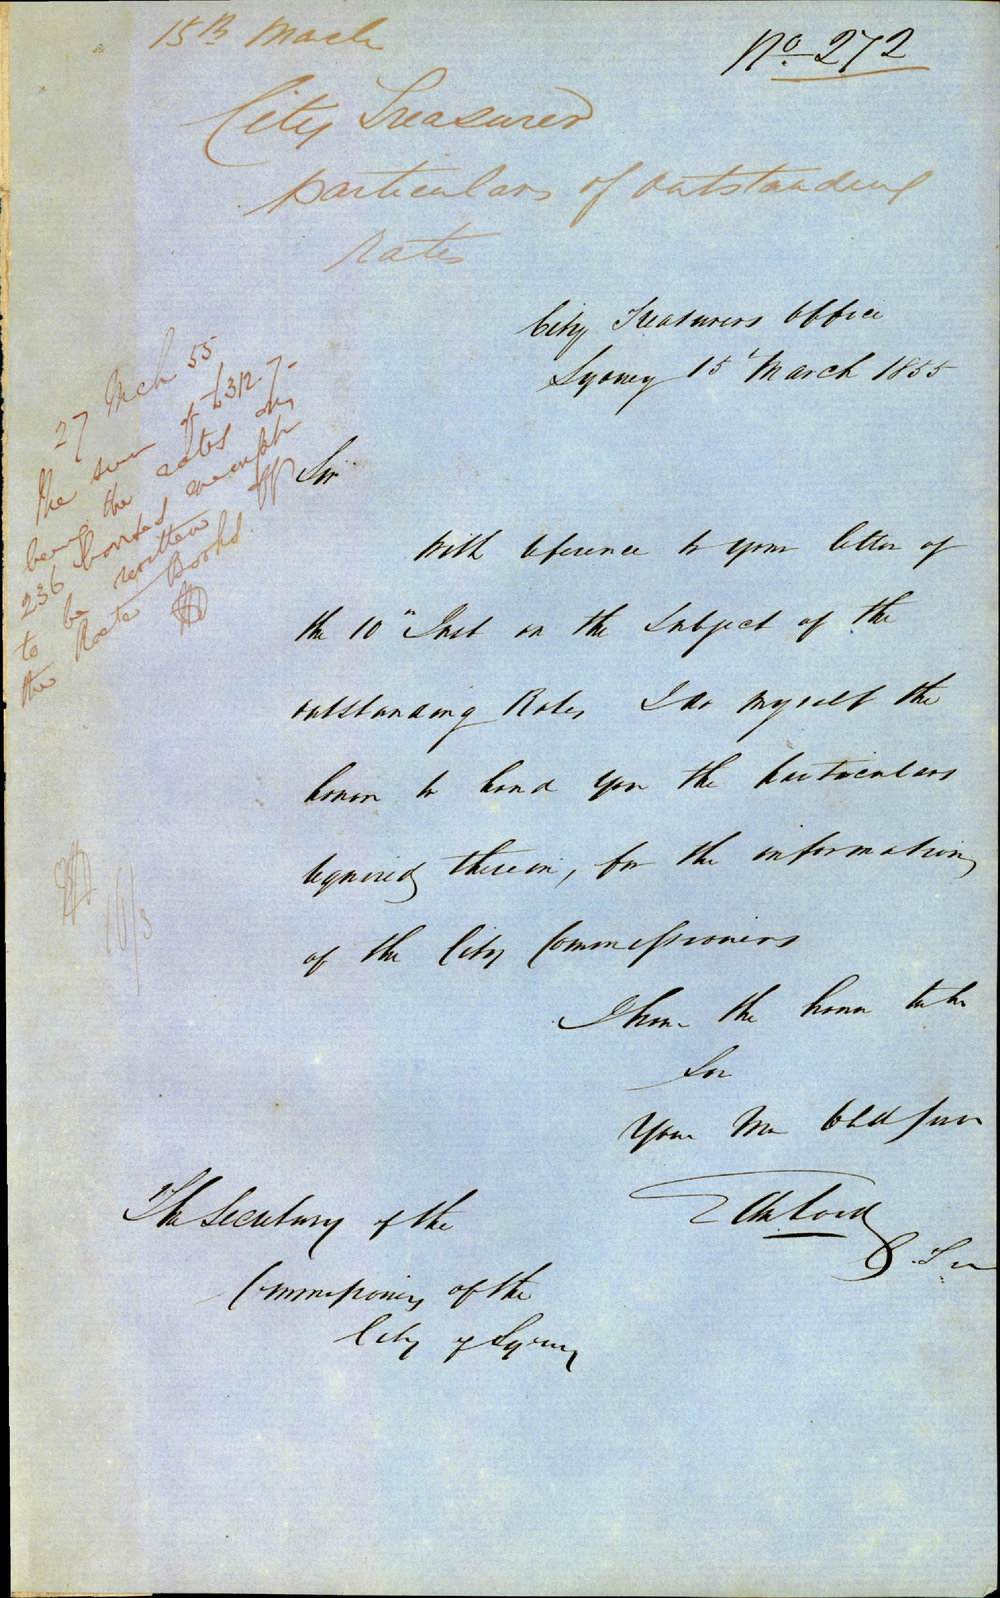 15th March
No. 272
City Treasurer
particulars of outstanding
rates
City Treasurers Office
Sydney 15 March 1855
27 Mch 55
The sum of £312.7-
being the rates on
236 houses
to be written off
the Rate Books.
Sir
With reference to your letter of
the 10" Inst on the subject of the
outstanding Rates I do myself the
honor to hand you the particulars
required therein, for the information
of the City Commissioners
16/3
I have the honor to be
Sir
Your Mo Obdt Serv
C. Tr
The Secretary of the
Commissioners of the
City of Sydney